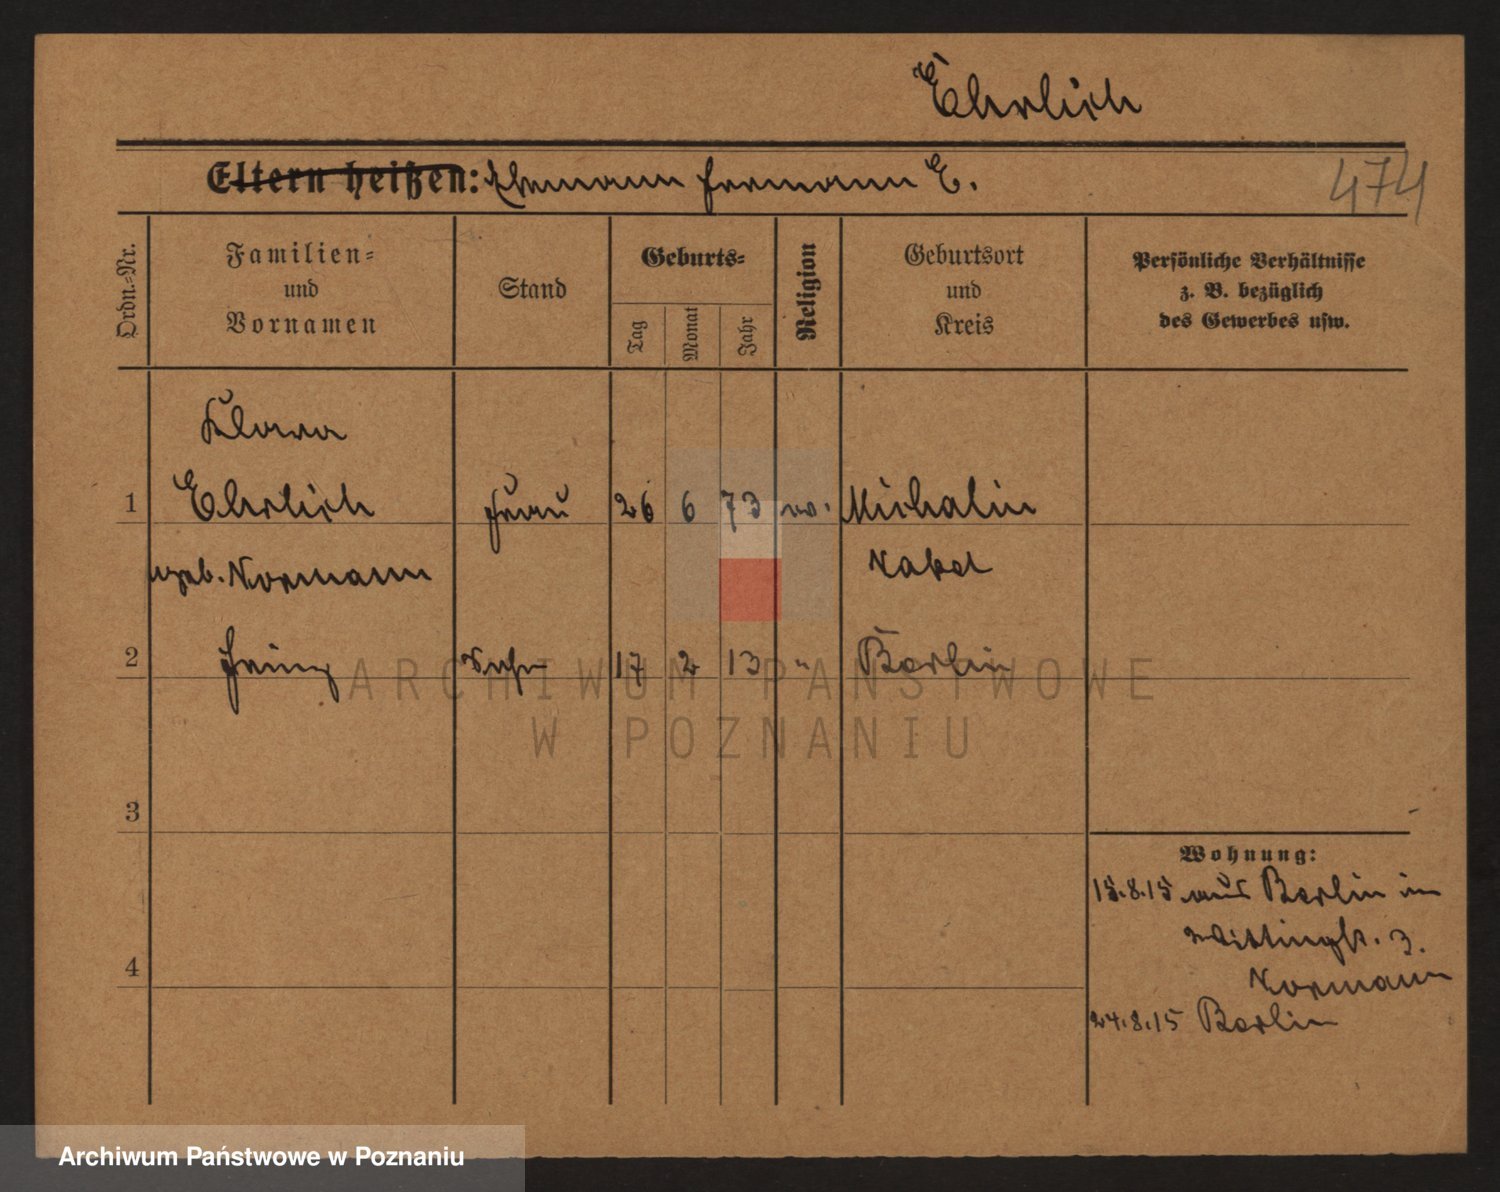 Ehrlich
Eltern heißen: Ehemann Hermann E.
474
Ordn.-Nr.
Familien-
und
Vornamen
Stand
Geburts-
Tag
Monat
Jahr
Religion
Geburtsort
und
Kreis
Persönliche Verhältnisse
z. B. bezüglich
des Gewerbes usw.
Klara
1 Ehrlich Frau 26 6 73 Michalin
geb. Normann Nakel
2 Heinz Sohn 17 2 13 " Berlin
3
4
Wohnung:
15.8.15 aus Berlin in
3.
Normann
24.8.15 Berlin
ARCHIWUM PAŃSTWOWE
W POZNANIU
Archiwum Państwowe w Poznaniu